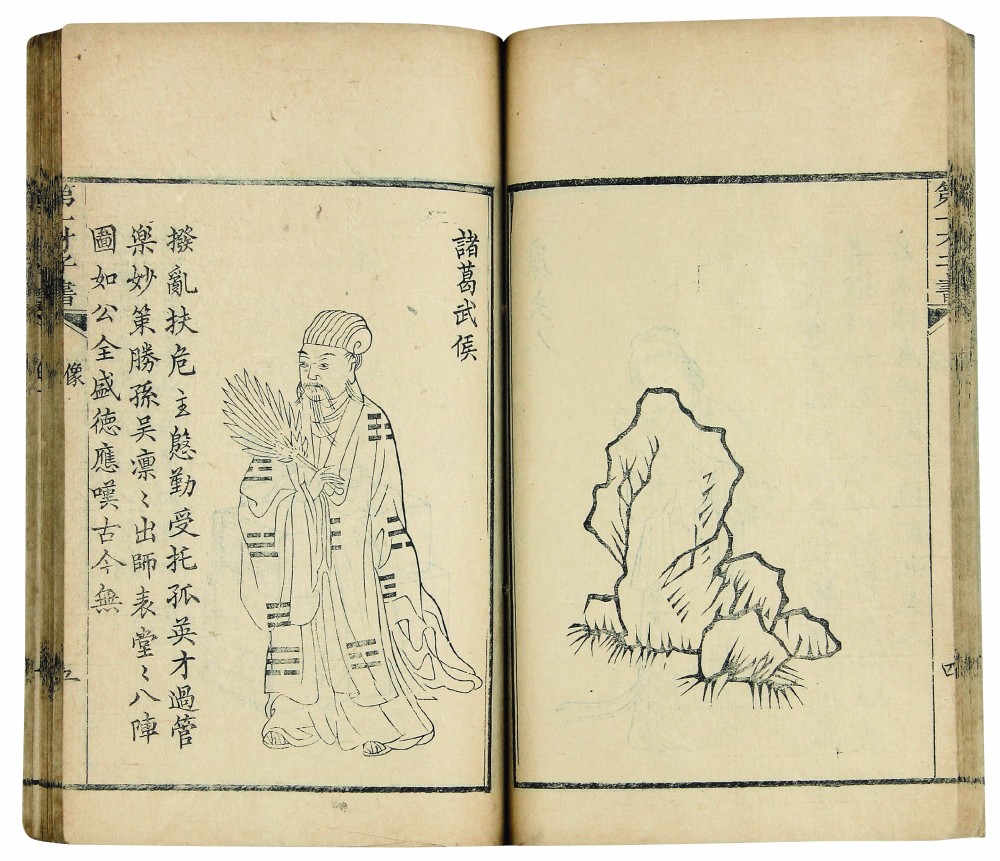 第一才子書
四
諸葛武侯
撥亂扶危主慇勤受托孤英才過管
樂妙策勝孫吳凛〻出師表堂〻八陣
圖如公全盛德應嘆古今無
第一才子書
像
五